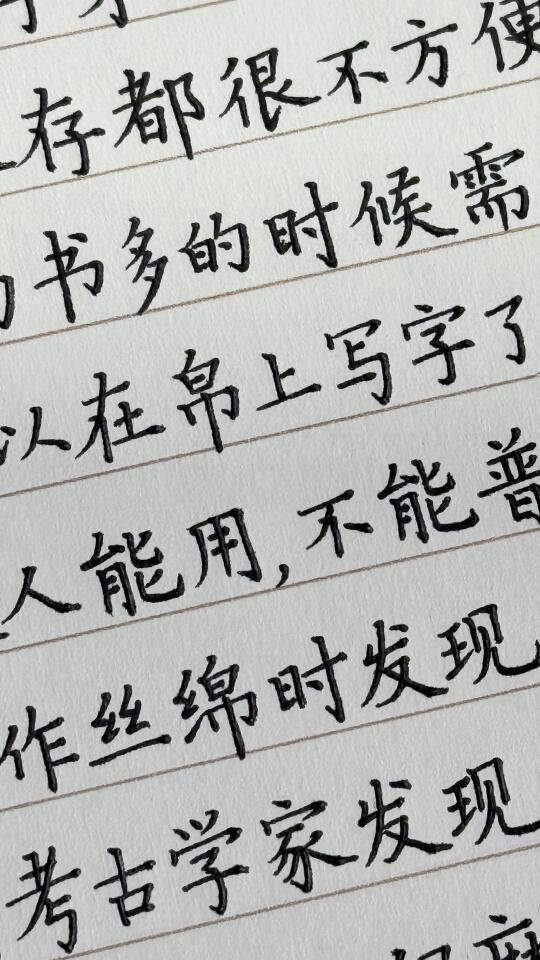 存都很不方便
书多的时候需
以在帛上写字了
人能用,不能普
作丝绵时发现
考古学家发现